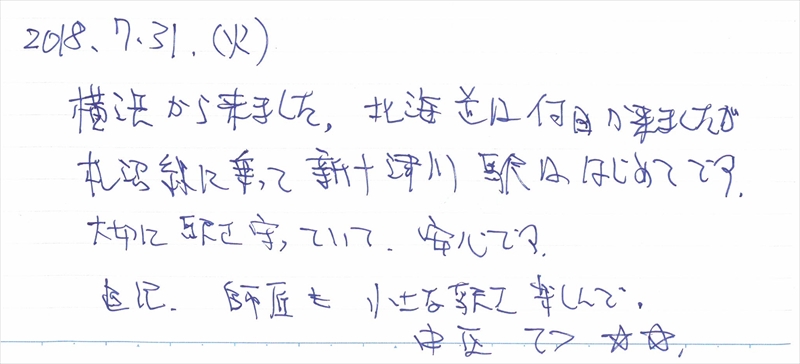 2018.7.31.(火)
横浜から来ました。北海道は何回か来ましたが
札沼線に乗って新十津川駅ははじめてです。
大切に駅を守っていて、安心です。
追記. 師匠も小さな駅を楽しんで。
中区 てつ ☆☆.